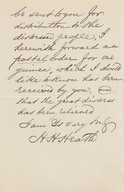 be sent to you for
distribution to the
distressed people, I
herewith forward an
postal order for one
guinea, which I should
like to know has been
received by you, and
that the great distress
has been relieved
I am Yrs very truly
H H Heath